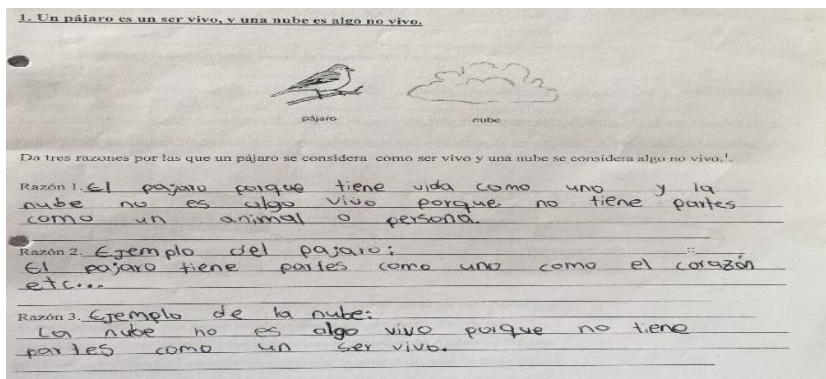 1. Un pájaro es un ser vivo, y una nube es algo no vivo.
pájaro
nube
Da tres razones por las que un pájaro se considera como ser vivo y una nube se considera algo no vivo.¹.
Razón 1. El pajaro porque tiene vida como uno y la
nube no es algo vivo porque no tiene partes
como un animal o persona.
Razón 2. Ejemplo del pajaro:
El pajaro tiene partes como uno como el corazón
etc...
Razón 3. Ejemplo de la nube:
La nube no es algo vivo porque no tiene
partes como un ser vivo.